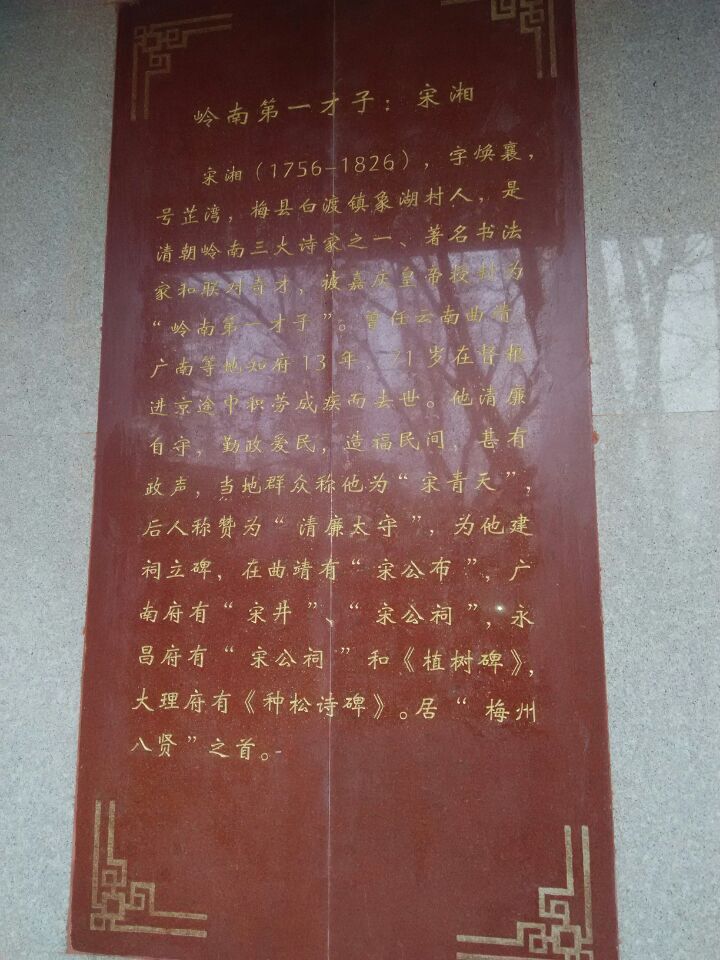 岭南第一才子：宋湘
宋湘（1756-1826），字焕襄，
号芷湾，梅县白渡镇象湖村人，是
清朝岭南三大诗家之一、著名书法
家和联对奇才，被嘉庆皇帝授封为
“岭南第一才子”。曾任云南曲靖、
广南等地知府13年、71岁在督粮
进京途中积劳成疾而去世。他清廉
自守，勤政爱民，造福民间，甚有
政声，当地群众称他为“宋青天”，
后人称赞为“清廉太守”，为他建
祠立碑，在曲靖有“宋公布”，广
南府有“宋井”、“宋公祠”，永
昌府有“宋公祠”和《植树碑》，
大理府有《种松诗碑》。居“梅州
八贤”之首。